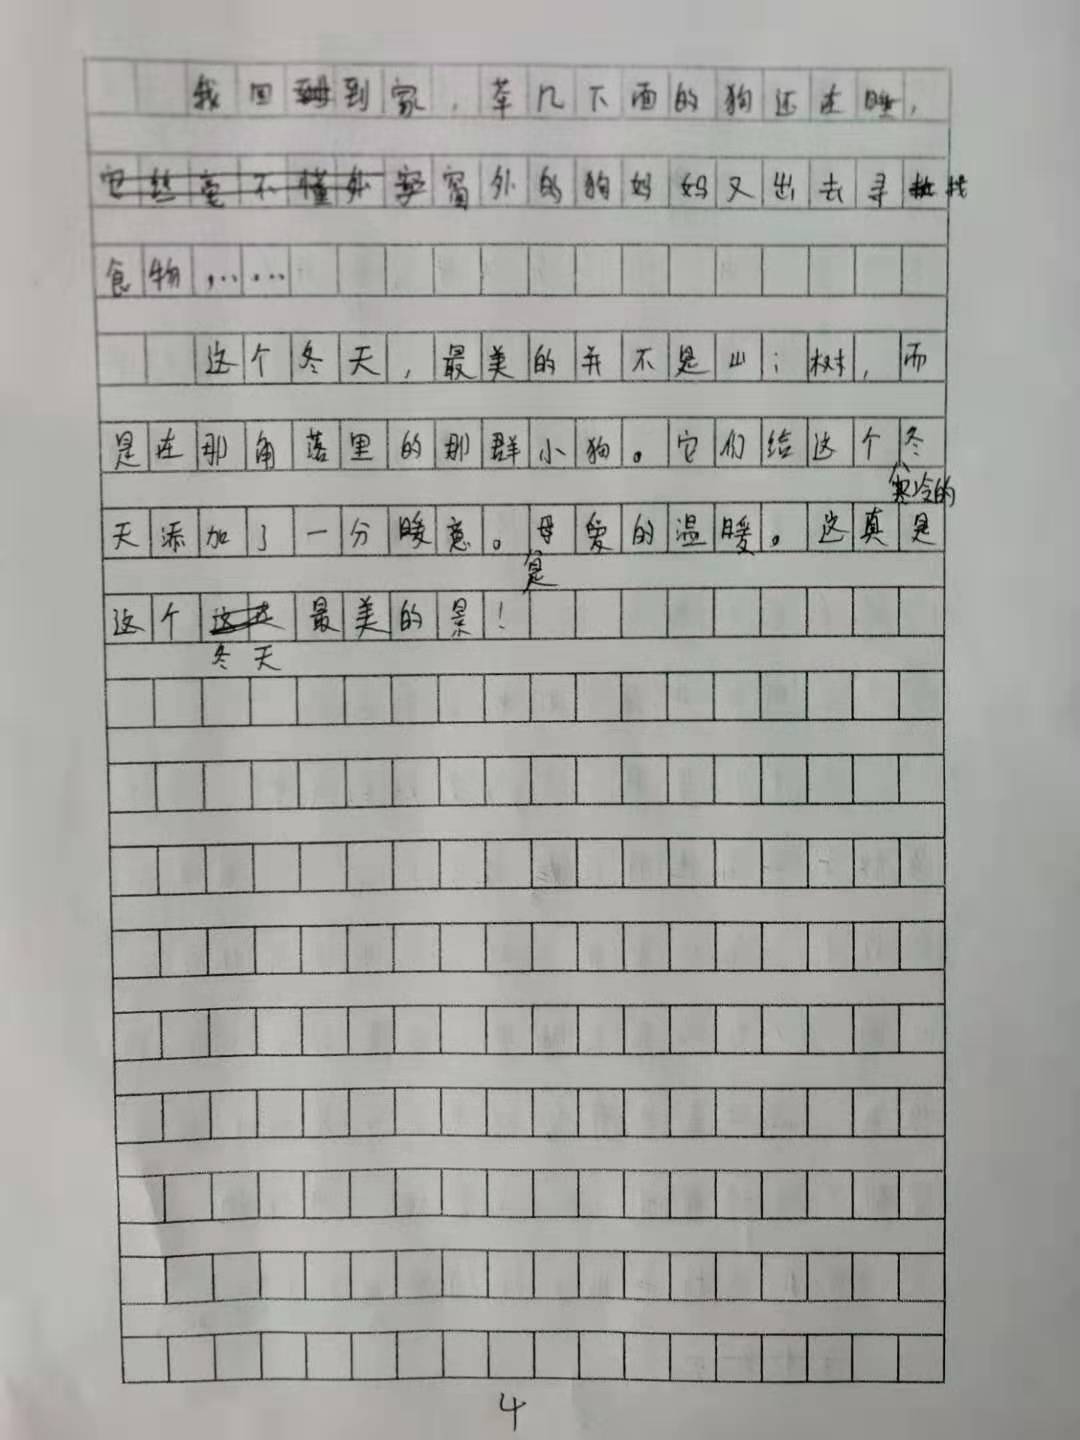 我回到家，茶几下面的狗还在睡，
窗外的狗妈妈又出去寻找
食物，……
这个冬天，最美的并不是山；树，而
是在那角落里的那群小狗。它们给这个寒冷的冬
天添加了一分暖意。是母爱的温暖。这真是
这个冬天最美的景！
4